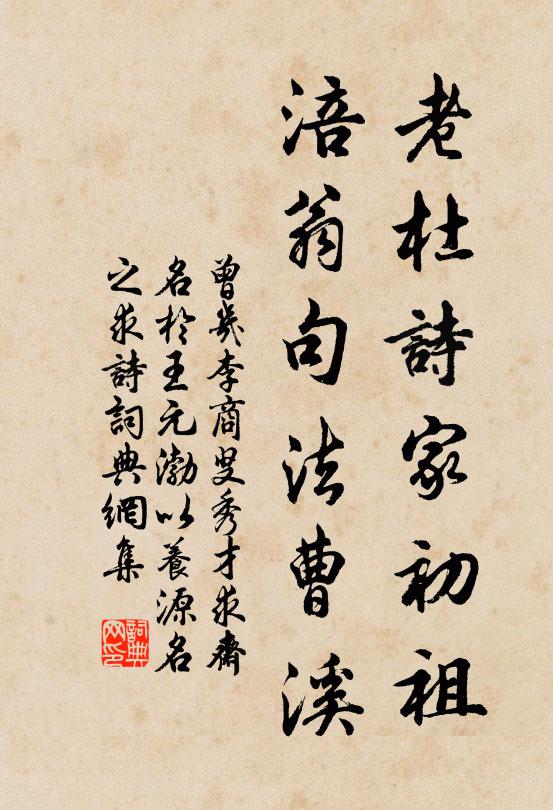 老杜詩家初祖
涪翁句法曹溪
曾幾李商叟秀才求齋
名於王元渤以養源名
之求詩詞典網集
詞典网印